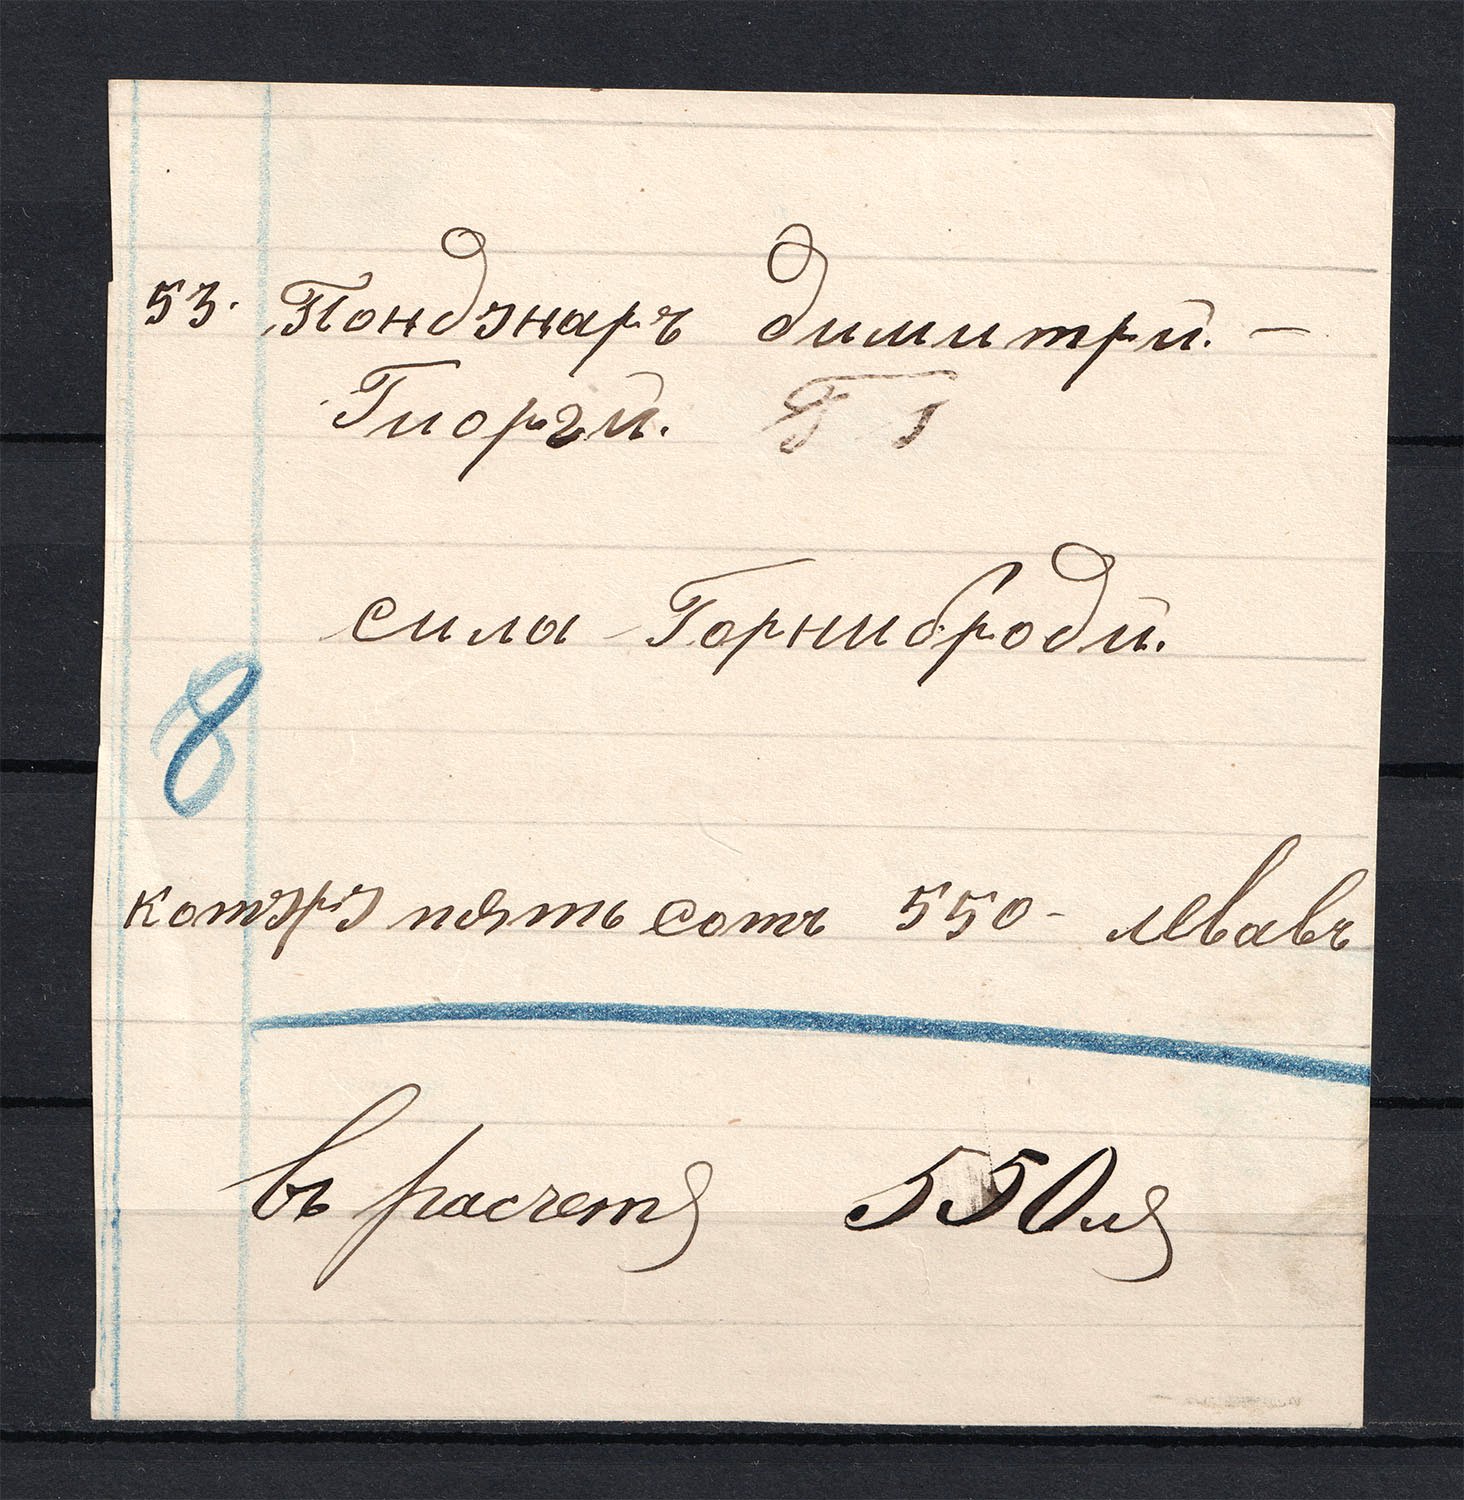 53. Пондзнаръ димитрй. –
Гиоргй. Г Г
сила Горниброди.
8
котзрз пять сотъ 550 – левавъ
въ расчетя 550 ля